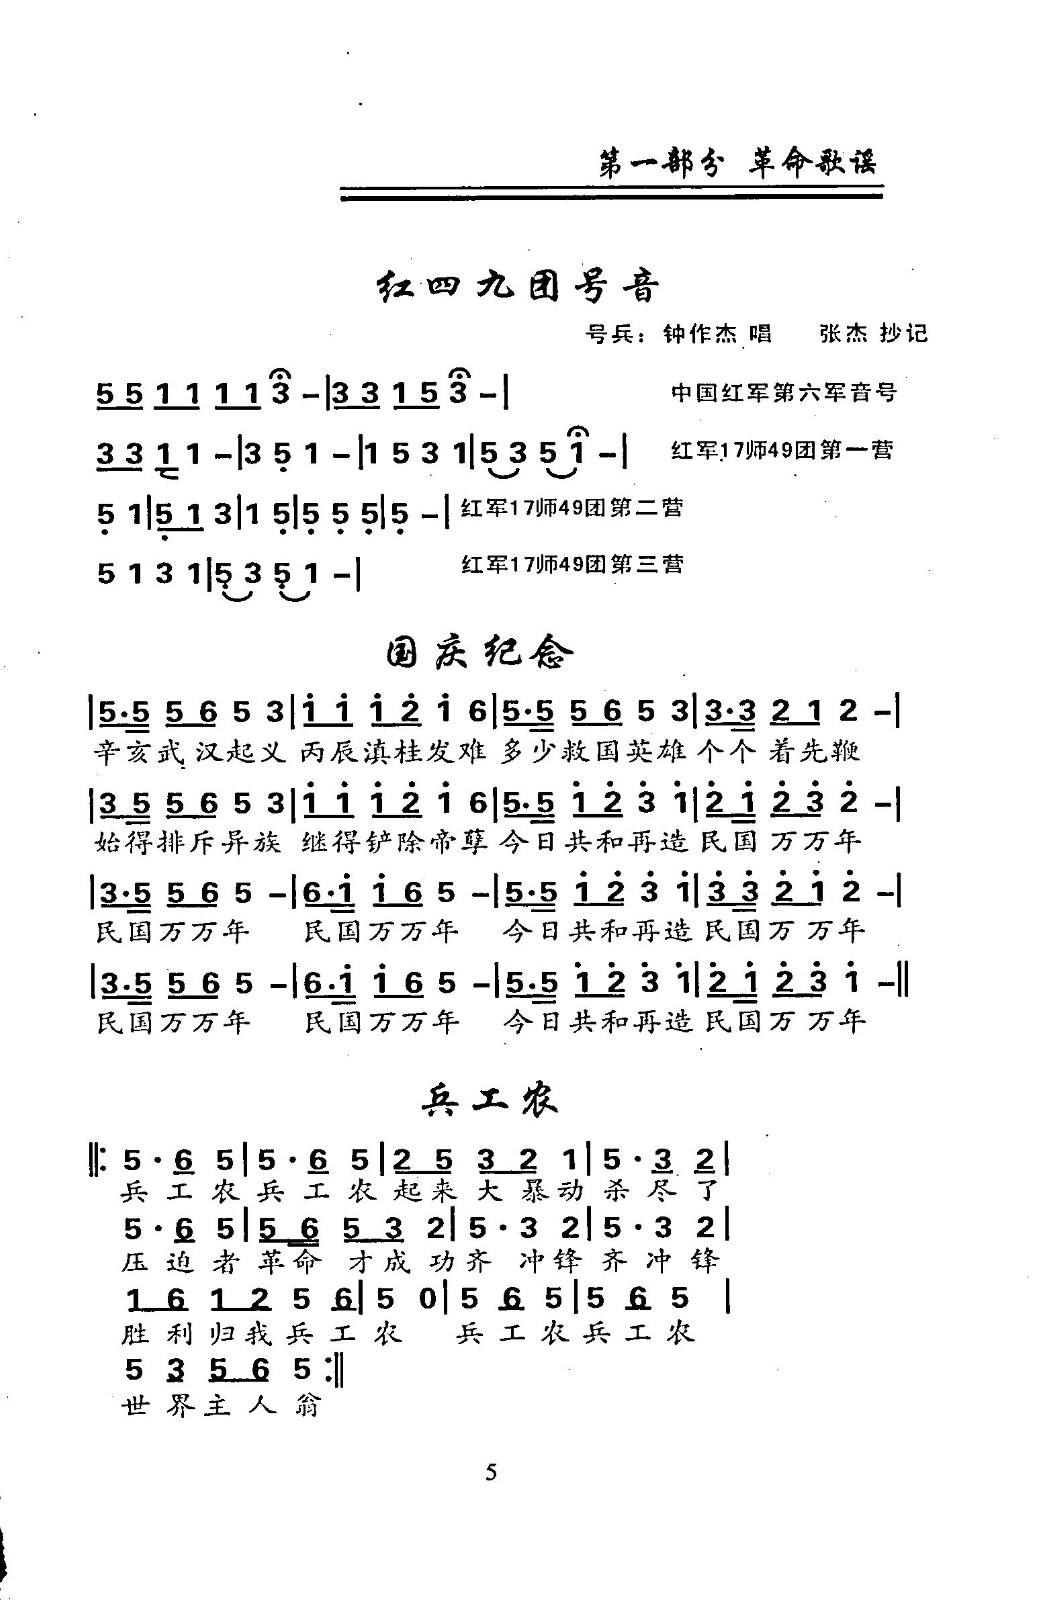 第一部分 革命歌谣
红四九团号音
号兵：钟作杰 唱 张杰 抄记
5 5 1 1 1 1 3 -|3 3 1 5 3 -| 中国红军第六军音号
3 3 1 1 -|3 5 1 -|1 5 3 1|5 3 5 1 -| 红军17师49团第一营
5 1|5 1 3|1 5|5 5 5|5 -| 红军17师49团第二营
5 1 3 1|5 3 5 1 -| 红军17师49团第三营
国庆纪念
|5·5 5 6 5 3|1 1 1 2 1 6|5·5 5 6 5 3|3·3 2 1 2 -|
辛亥武汉起义 丙辰滇桂发难 多少救国英雄 个个 着先鞭
|3 5 5 6 5 3|1 1 1 2 1 6|5·5 1 2 3 1|2 1 2 3 2 -|
始得排斥异族 继得铲除帝孽 今日共和再造 民国 万万年
|3·5 5 6 5 -|6·1 1 6 5 -|5·5 1 2 3 1|3 3 2 1 2 -|
民国万万年 民国万万年 今日共和再造 民国万 万年
|3·5 5 6 5 -|6·1 1 6 5 -|5·5 1 2 3 1|2 1 2 3 1 -‖
民国万万年 民国万万年 今日共和再造 民国万 万年
兵工农
‖: 5·6 5|5·6 5|2 5 3 2 1|5·3 2|
兵工农兵工农起来大暴动杀尽了
5·6 5|5 6 5 3 2|5·3 2|5·3 2|
压迫者革命 才成功齐 冲锋 齐冲锋
1 6 1 2 5 6|5 0|5 6 5|5 6 5 |
胜利归我兵工农 兵工农兵工农
5 3 5 6 5 :‖
世界主人翁
5